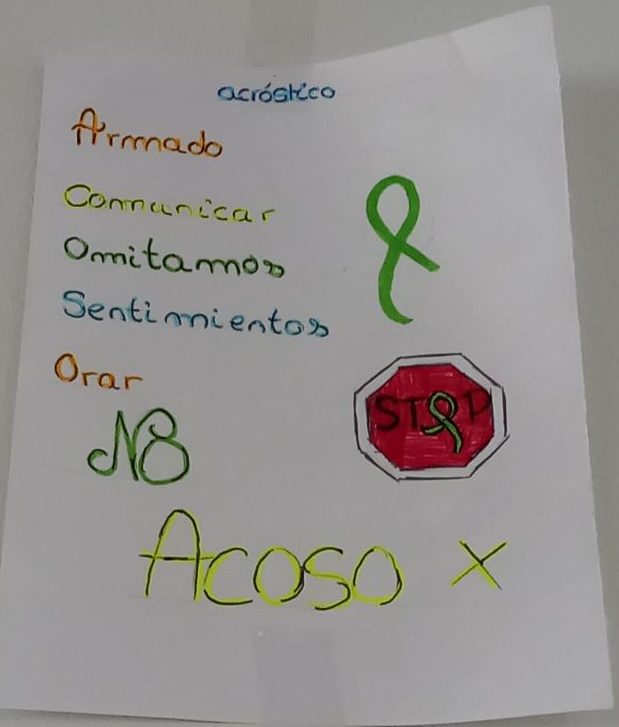 acróstico
Armado
Comunicar
Omitamos
Sentimientos
Orar
STOP
NO
Acoso X